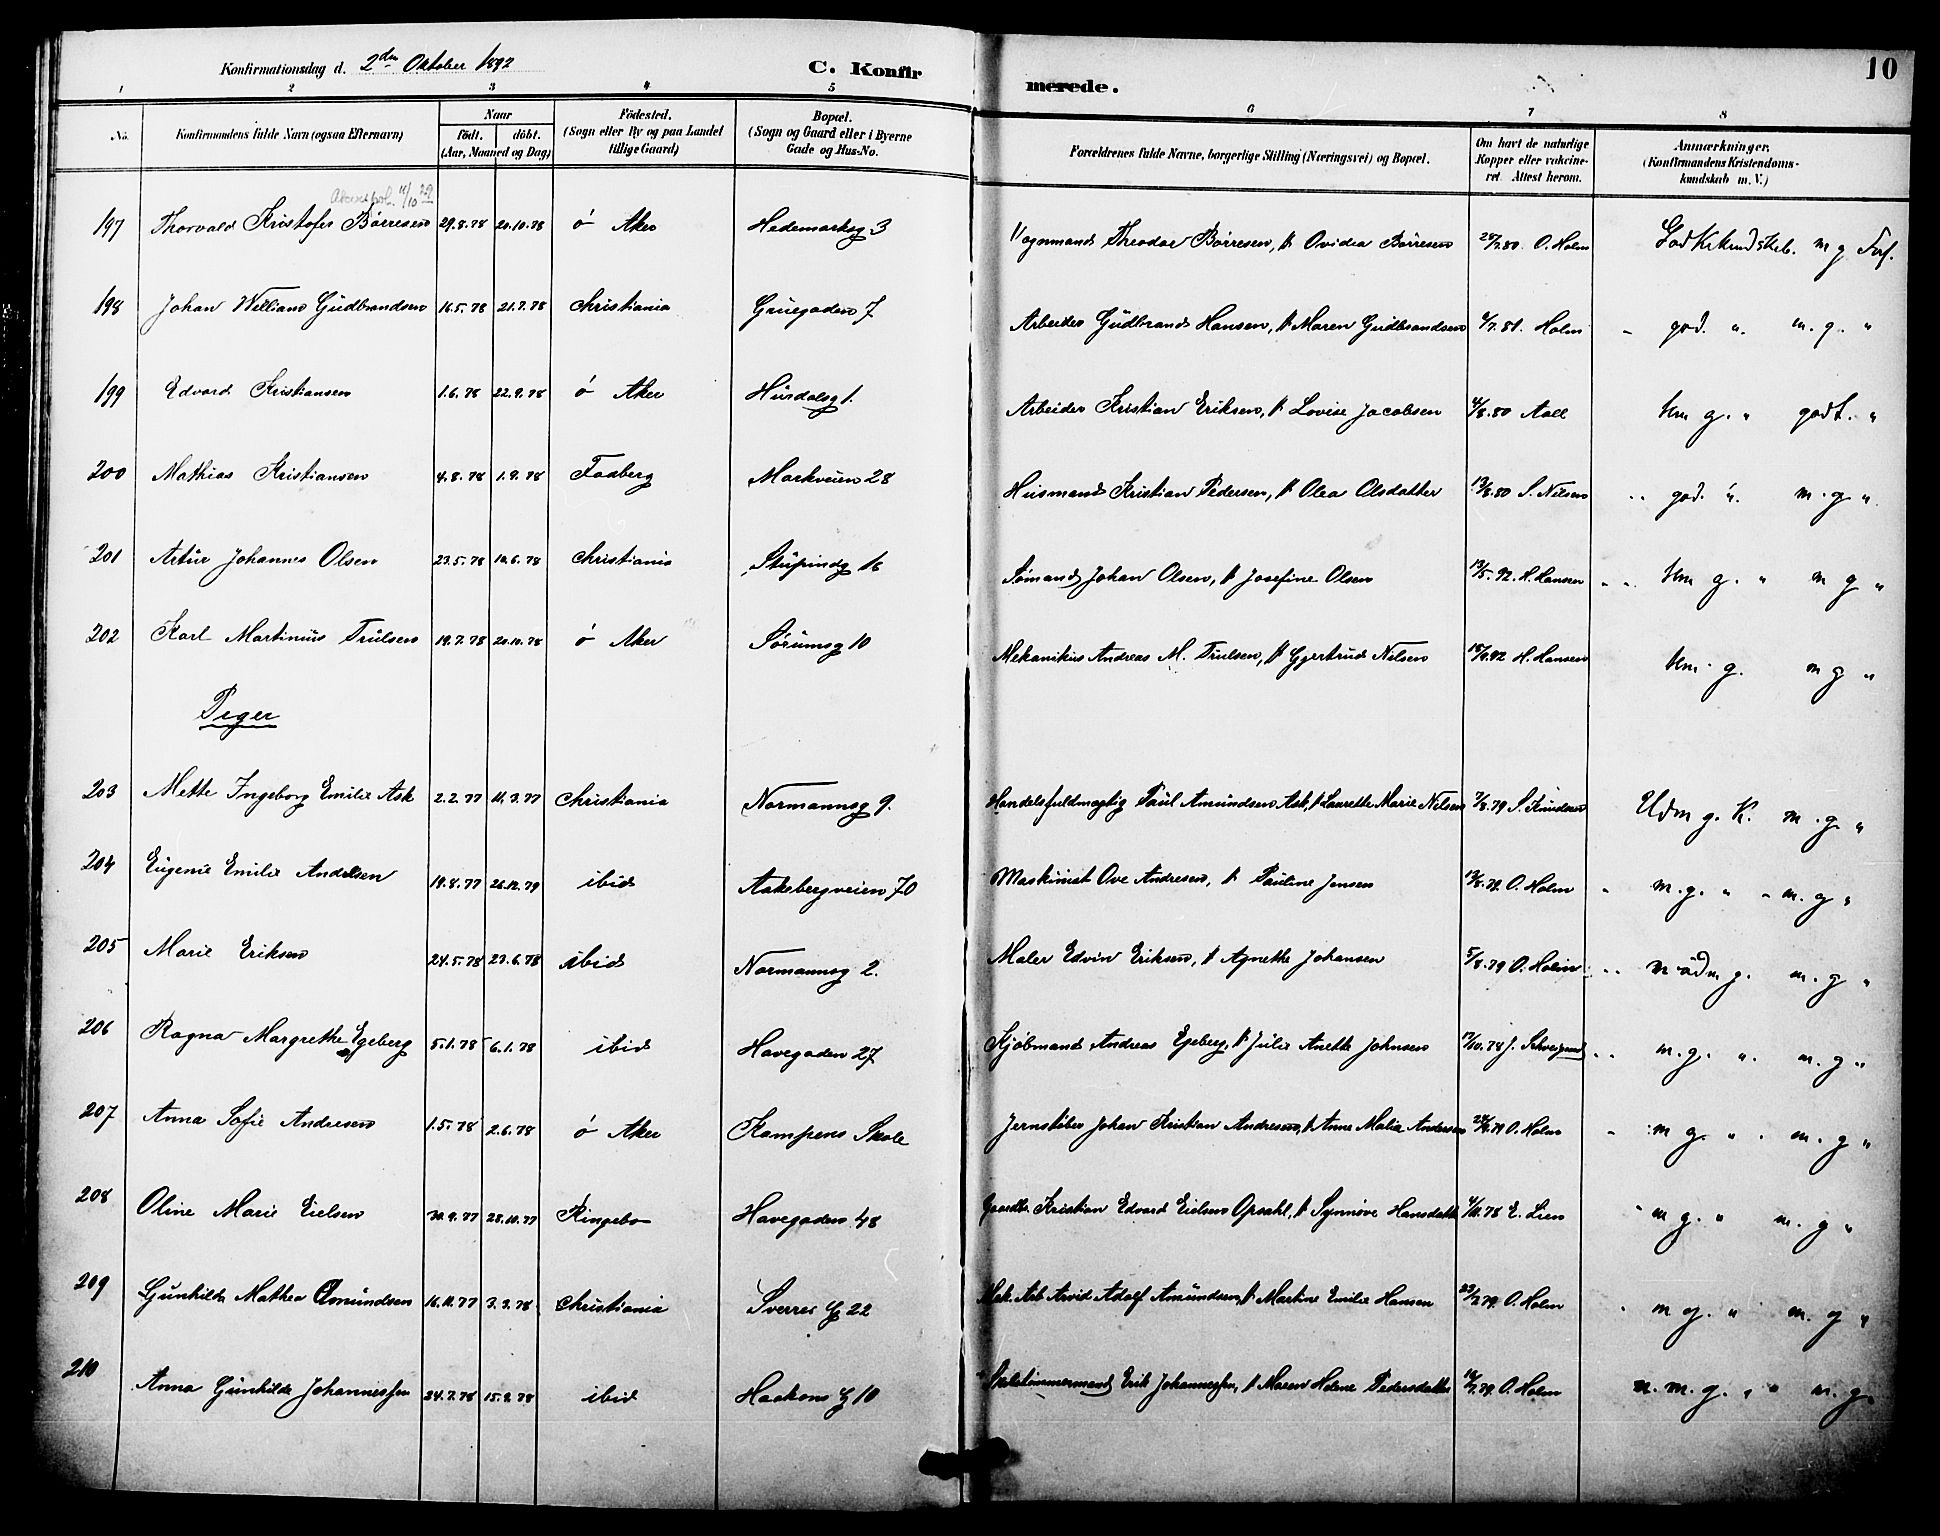 Konfirmationsdag d. 2den Oktober 1892 C. Konfirmerede. 10
1 2 3 4 5 6 7 8
No. Konfirmandens fulde Navn (ogsaa Efternavn) Naar født. døbt. (Aar, Maaned og Dag) Fødested. (Sogn eller By og paa Landet tillige Gaard) Bopæl. (Sogn og Gaard eller i Byerne Gade og Hus-No. Forældrenes fulde Navne, borgerlige Stilling (Næringsvei) og Bopæl. Om havt de naturlige Kopper eller vakcineret. Attest herom. Anmærkninger. (Konfirmandens Kristendomskundskab m. V.)
11/10 29
197 Thorvald Kristofer Børresen 29.8.78 20.10.78 ó Aker Hedemarksg 3 Vognmand Theodor Børresen, & Ovidea Børresen 28/7.80. O. Holm God Kr. kundskab. m g Forh.
198 Johan William Gudbrandsen 16.5.78 21.7.78 Christiania Gruegaden 7 Arbeider Gudbrand Hansen, & Maren Gudbrandsen 4/7.81. Holm god. " m. g. "
199 Edvard Kristiansen 1.6.78 22.9.78 ó Aker Hurdalsg 1. Arbeider Kristian Eriksen, & Lovise Jacobsen 4/8.80 Aall tem g. " godt. "
200 Mathias Kristiansen 4.8.78 1.9.78 Faaberg Markveien 28 Husmand Kristian Pedersen, & Olea Olsdatter 13/8.80 S. Nilsen god. " m. g "
201 Artur Johannes Olsen 23.5.78 10.6.78 Christiania Stupindg 16 Sømand Johan Olsen, & Josefine Olsen 19/5.92 H. Hansen tem g. " m g "
202 Karl Martinius Trulsen 19.7.78 20.10.78 ó Aker Sørumsg 10 Mekanikus Andreas M. Trulsen, & Gjertrud Nilsen 15/9.92 H. Hansen tem. g. m g "
Piger
203 Mette Ingeborg Emilie Ask 2.2.77 11.3.77 Christiania Normannsg 9. Handelsfuldmægtig Paul Amundsen Ask, & Laurette Marie Nilsen 7/8.79 S. Knudsen Udm g. K. m. g "
204 Eugenie Emilie Andresen 19.8.77 26.12.79 ibid Aakebergveien 70 Maskinist Ove Andresen, & Pauline Jensen 13/8.79. O. Holm m. g. " m. g "
205 Marie Eriksen 24.5.78 23.6.78 ibid Normannsg 2. Maler Edvin Eriksen, & Agnethe Johansen 5/8.79 O. Holm n. udm g. m. g "
206 Ragna Margrethe Egeberg 5.1.78 6.1.78 ibid Havegaden 27 Kjøbmand Andreas Egeberg, & Julie Anette Johnsen 17/10.78 J. m. g. " m. g "
207 Anna Sofie Andresen 1.5.78 2.6.78 ó Aker Kampens Skole Jernstøber Johan Kristian Andresen, & Anne Malie Andersen 28/8.79 O. Holm m g. " m. g "
208 Oline Marie Eielsen 30.9.77 28.10.77 Ringebo Havegaden 48 Gaardbr. Kristian Edvard Eielsen Opsahl, & Synnøve Hansdatter 4/11.78 E. Lien m g. " m. g "
209 Gunhilda Mathea Amundsen 16.11.77 3.3.78 Christiania Sverres G 22 Mek. Arb Arvid Adolf Amundsen, & Martine Emilie Hansen 23/7.79. O. Holm m g. " m. g "
210 Anna Gunhilda Johannessen 24.7.78 15.9.78 ibid Haakons G 10 Skibstimmermand Erik Johannessen, & Maren Helene Pedersdatter 16/7.79. O. Holm n. m. g. " m. g.